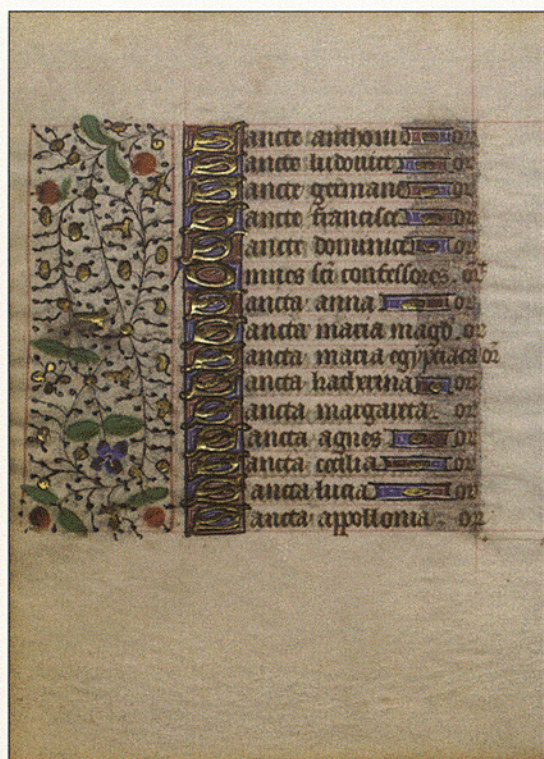 Sancte anthoni or
Sancte ludovice or
Sancte germane or
Sancte francisce or
Sancte dominice or
Omnes sci confessores. or
Sancta anna or
Sancta maria magd. or
Sancta maria egypciaca or
Sancta katherina or
Sancta margareta. or
Sancta agnes or
Sancta cecilia or
Sancta lucia or
Sancta appollonia. or